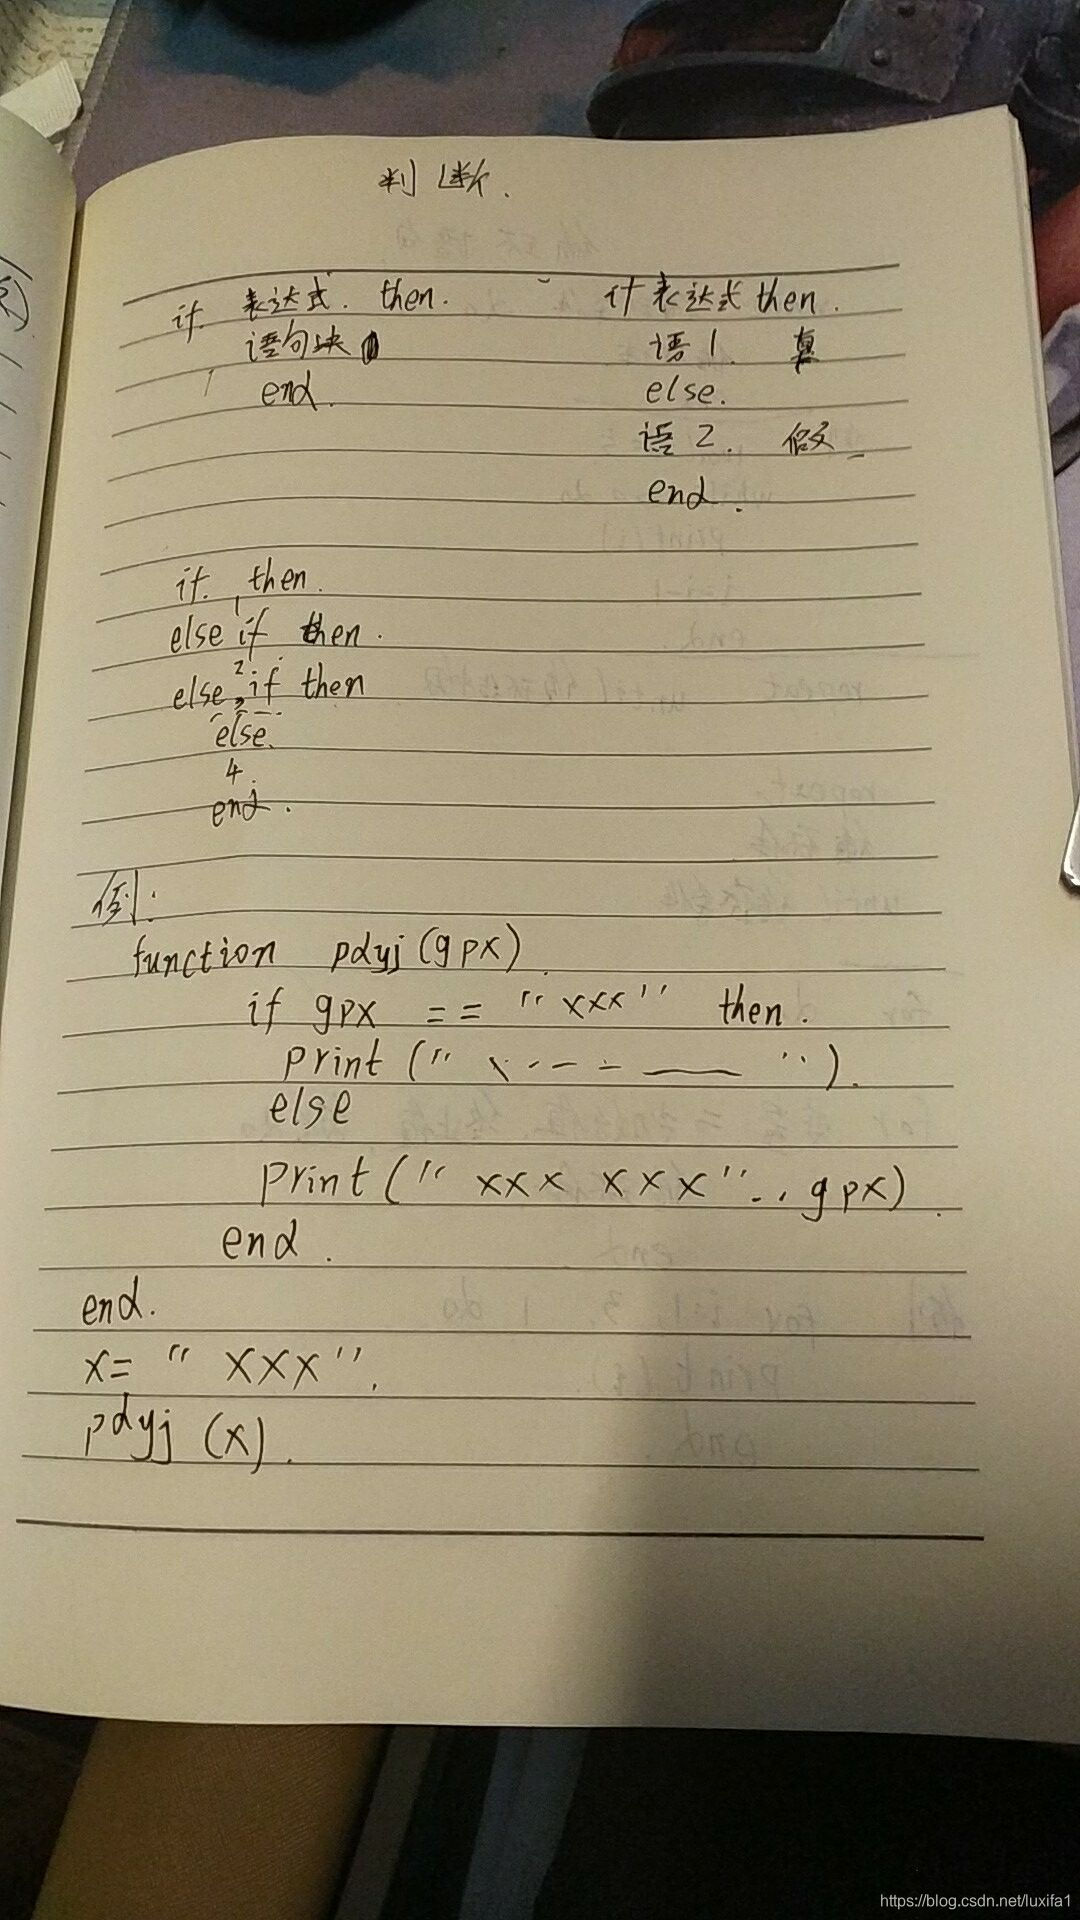 判断.
if 表达式. then.
语句块
end.
if 表达式 then.
语1. 真
else.
语2. 假
end.
if. then.
1
else if then.
2
else if then
3
else.
4.
end.
例:
function pdyj (gpx).
if gpx == "xxx" then.
print (" ").
else
print (" xxx xxx"..gpx).
end.
end.
x= " xxx".
pdyj (x).
https://blog.csdn.net/luxifa1